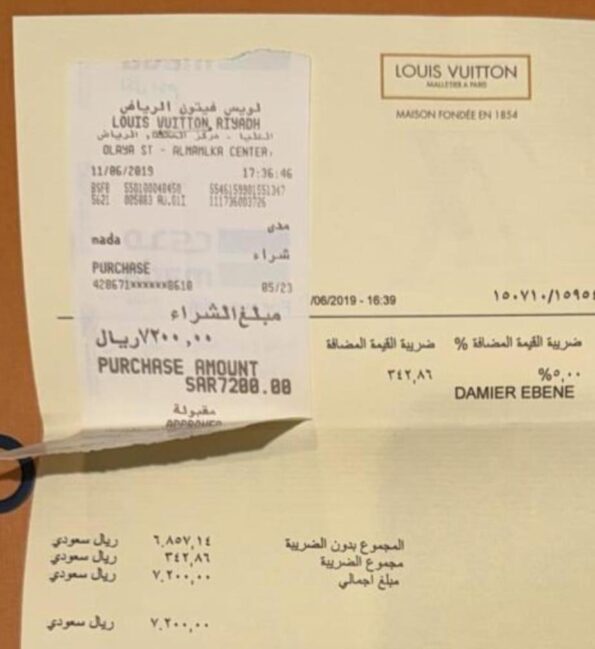 لويس فيتون الرياض
LOUIS VUITTON RIYADH
العليا - مركز المملكة, الرياض
OLAYA ST - ALMAMLKA CENTER,
11/06/2019 17:36:46
مدى
mada
شراء
PURCHASE
420671xxxxxx8610 05/23
مبلغ الشراء
٧٢٠٠,٠٠ ريال
PURCHASE AMOUNT
SAR7200.00
مقبولة
APPROVED
LOUIS VUITTON
MALLETIER A PARIS
MAISON FONDÉE EN 1854
/06/2019 - 16:39
ضريبة القيمة المضافة % ضريبة القيمة المضافة
%٥,٠٠ ٣٤٢,٨٦
DAMIER EBENE
المجموع بدون الضريبة ٦,٨٥٧,١٤ ريال سعودي
مجموع الضريبة ٣٤٢,٨٦ ريال سعودي
مبلغ اجمالي ٧,٢٠٠,٠٠ ريال سعودي
٧,٢٠٠,٠٠ ريال سعودي